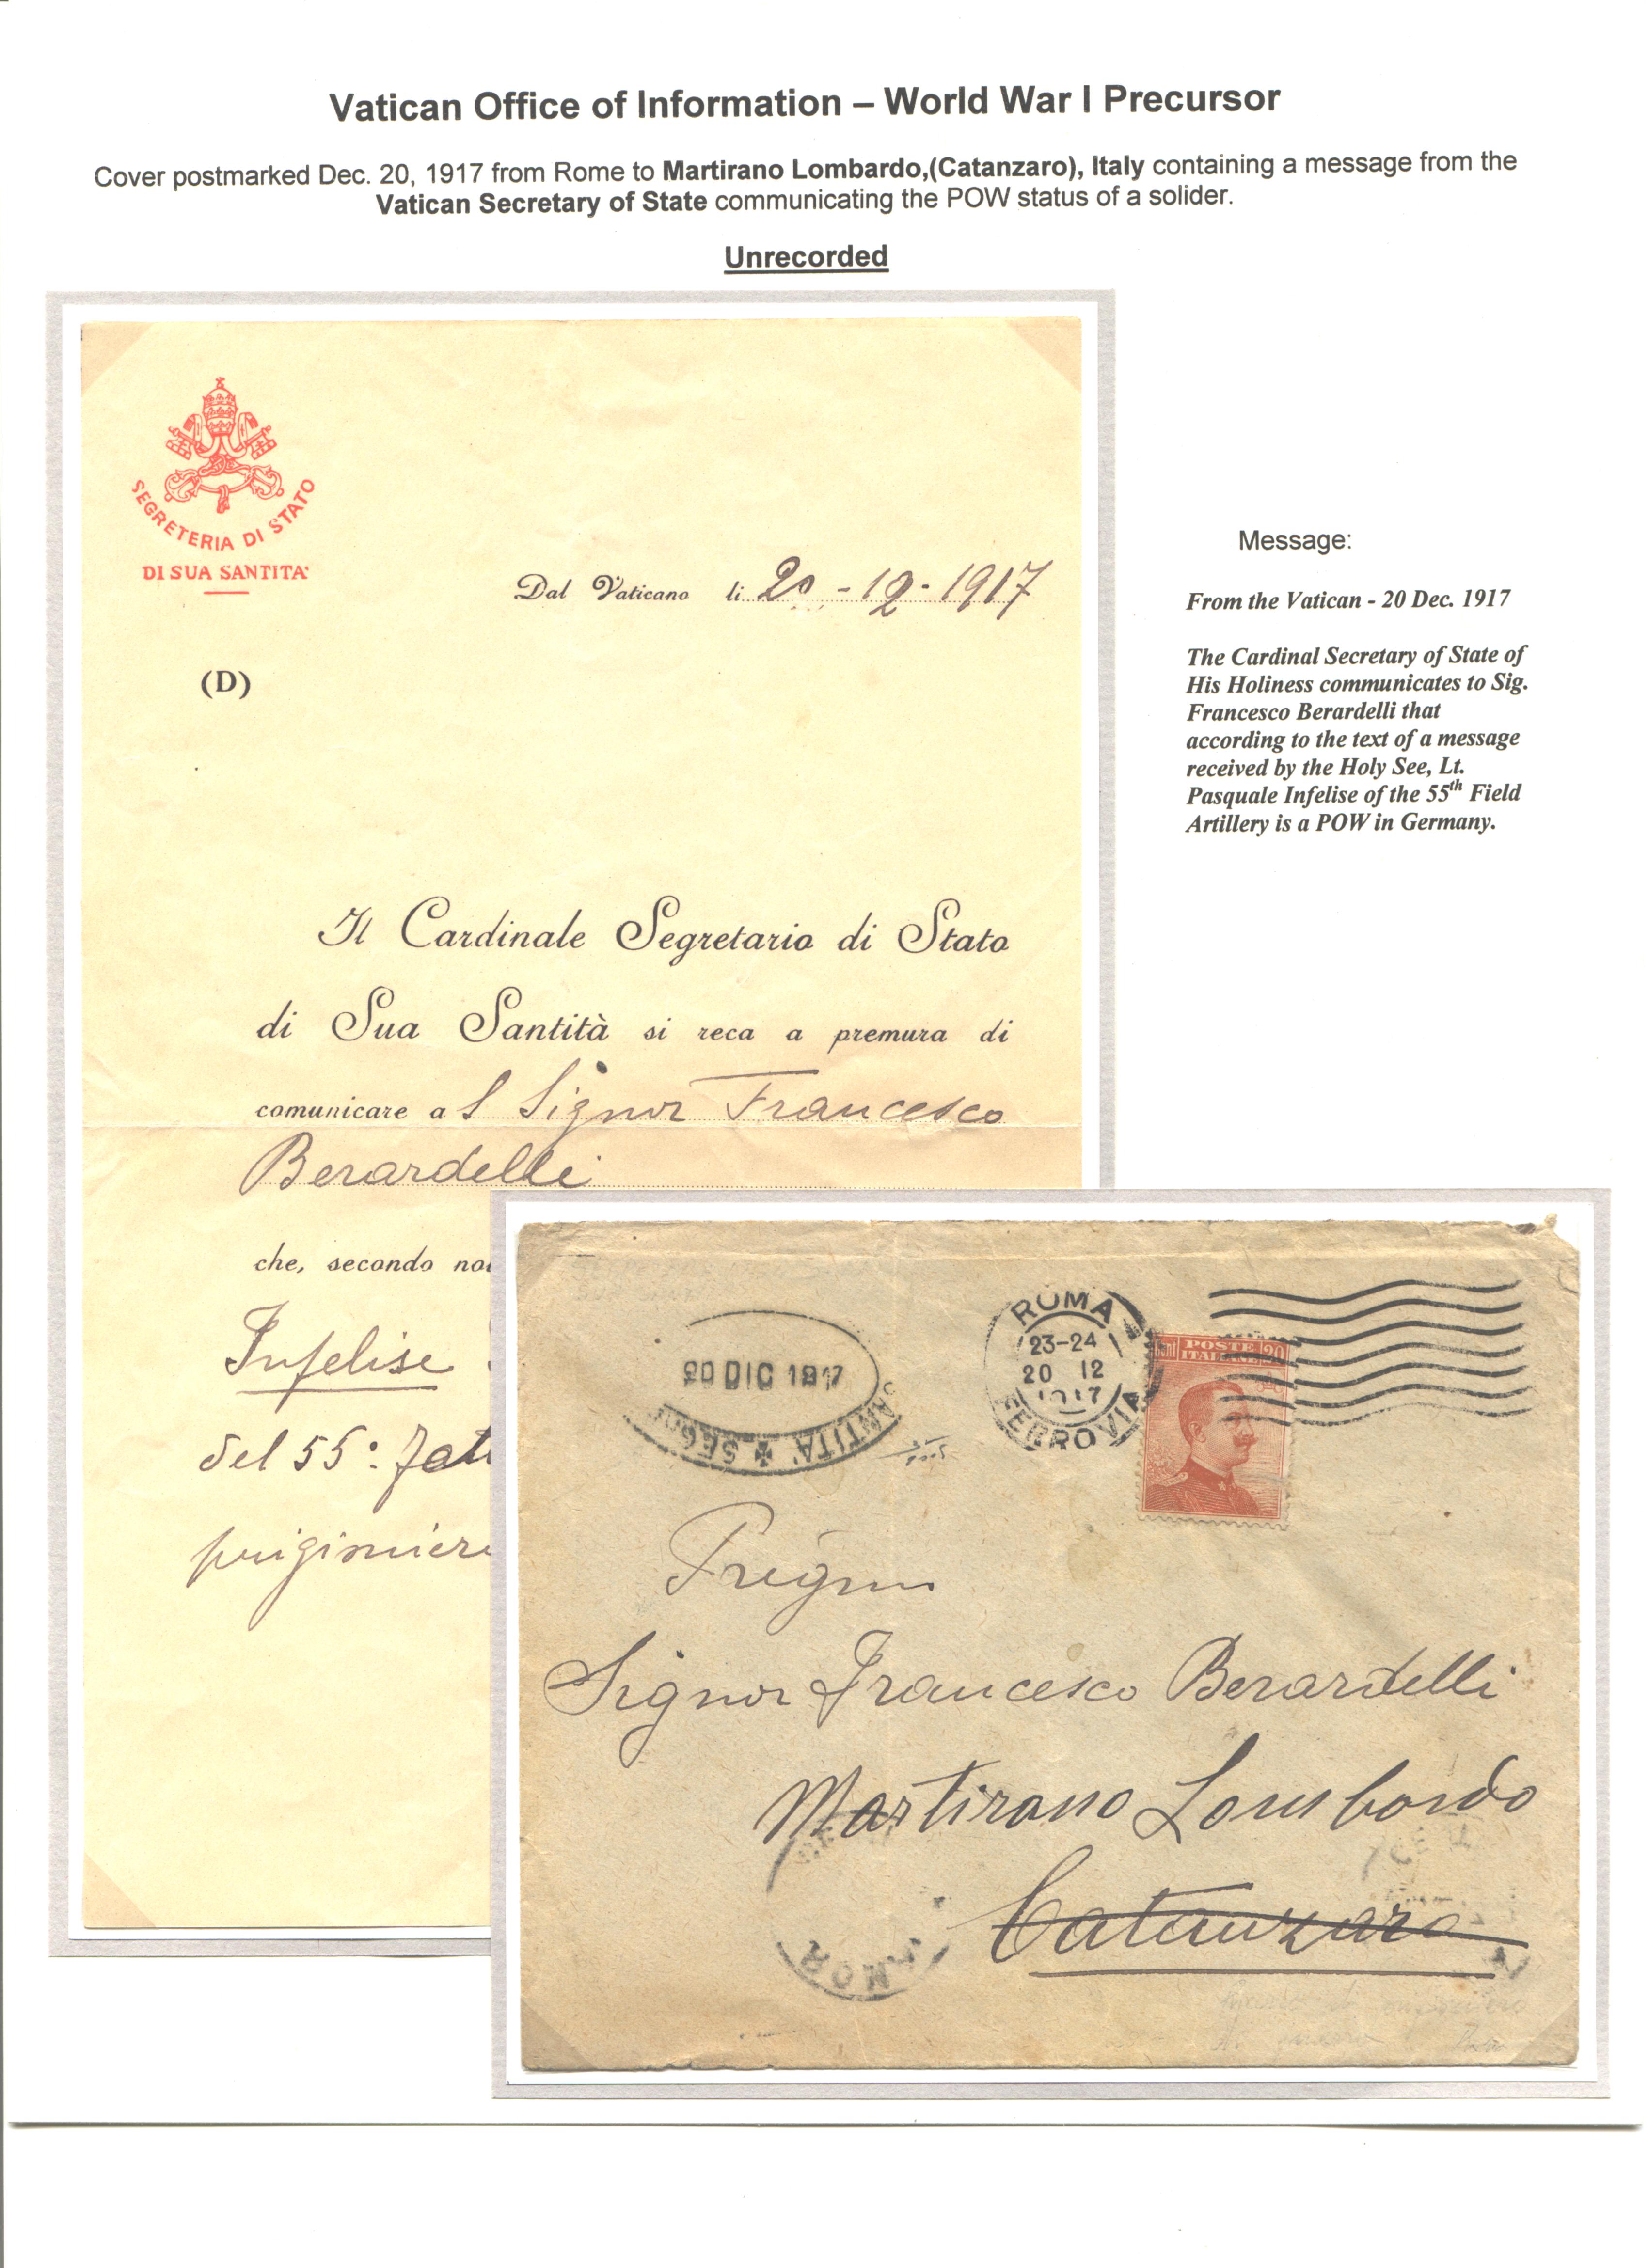 Vatican Office of Information – World War I Precursor
Cover postmarked Dec. 20, 1917 from Rome to Martirano Lombardo,(Catanzaro), Italy containing a message from the
Vatican Secretary of State communicating the POW status of a solider.
Unrecorded
SEGRETERIA DI STATO
DI SUA SANTITA'
Dal Vaticano li 20-12-1917
(D)
Il Cardinale Segretario di Stato
di Sua Santità si reca a premura di
comunicare al Signor Francesco
Berardelli
che, secondo
Infelise
del 55°
Message:
From the Vatican - 20 Dec. 1917
The Cardinal Secretary of State of
His Holiness communicates to Sig.
Francesco Berardelli that
according to the text of a message
received by the Holy See, Lt.
Pasquale Infelise of the 55th Field
Artillery is a POW in Germany.
20 DIC 1917
SANTITA' ✠ SEGR
ROMA
23-24
20 12
1917
FERROVIA
POSTE
ITALIANE
20
Signor Francesco Berardelli
Martirano Lombardo
Catanzaro